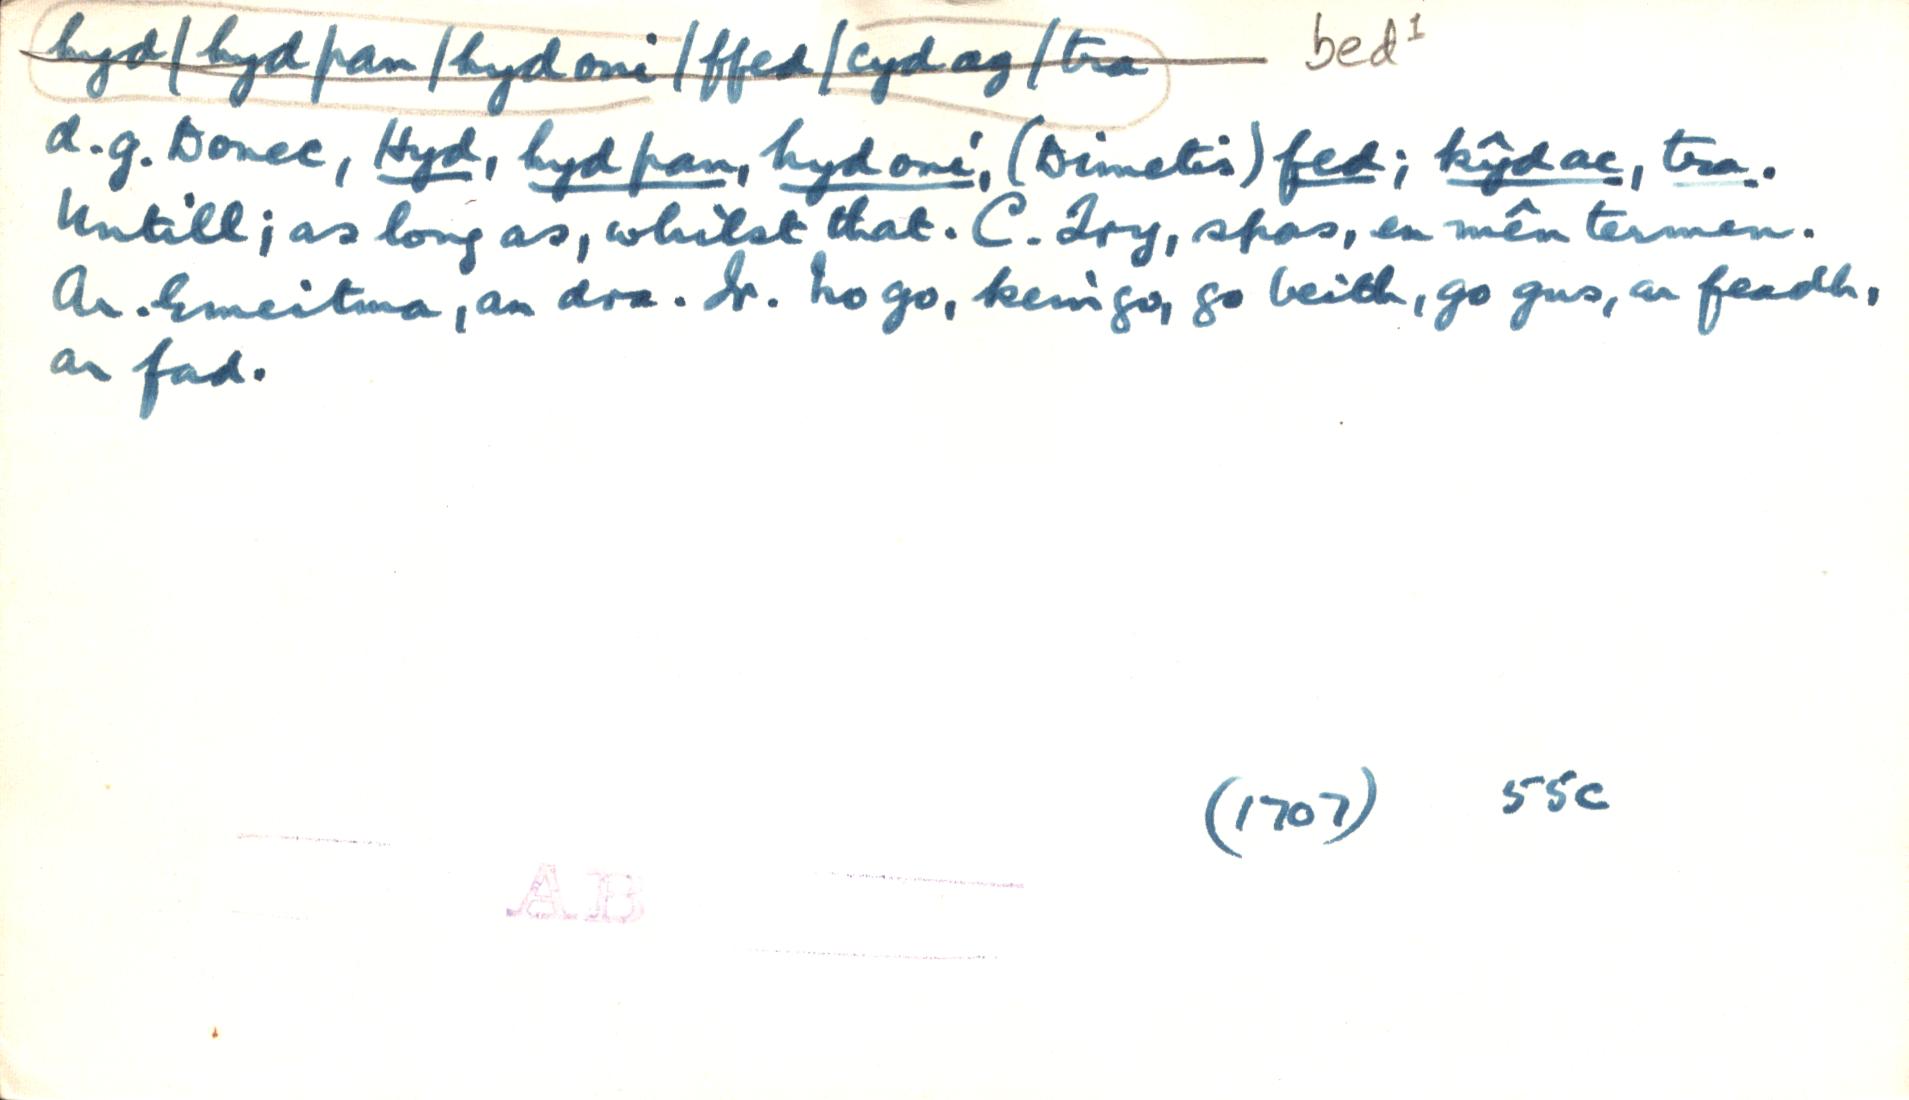 hyd/hyd pan/hyd oni/ffed/cyd ag/tra bed¹
d.g. Donec, Hyd, hyd pan, hyd oni, (Dimetis) fed; kŷd ac, tra.
Untill; as long as, whilst that. C. Try, spas, en mên termen.
Ar. Emeitma, an dra. Ir. No go, kein go, go beith, go gus, ar feadh,
ar fad.
(1707) 55c
AB